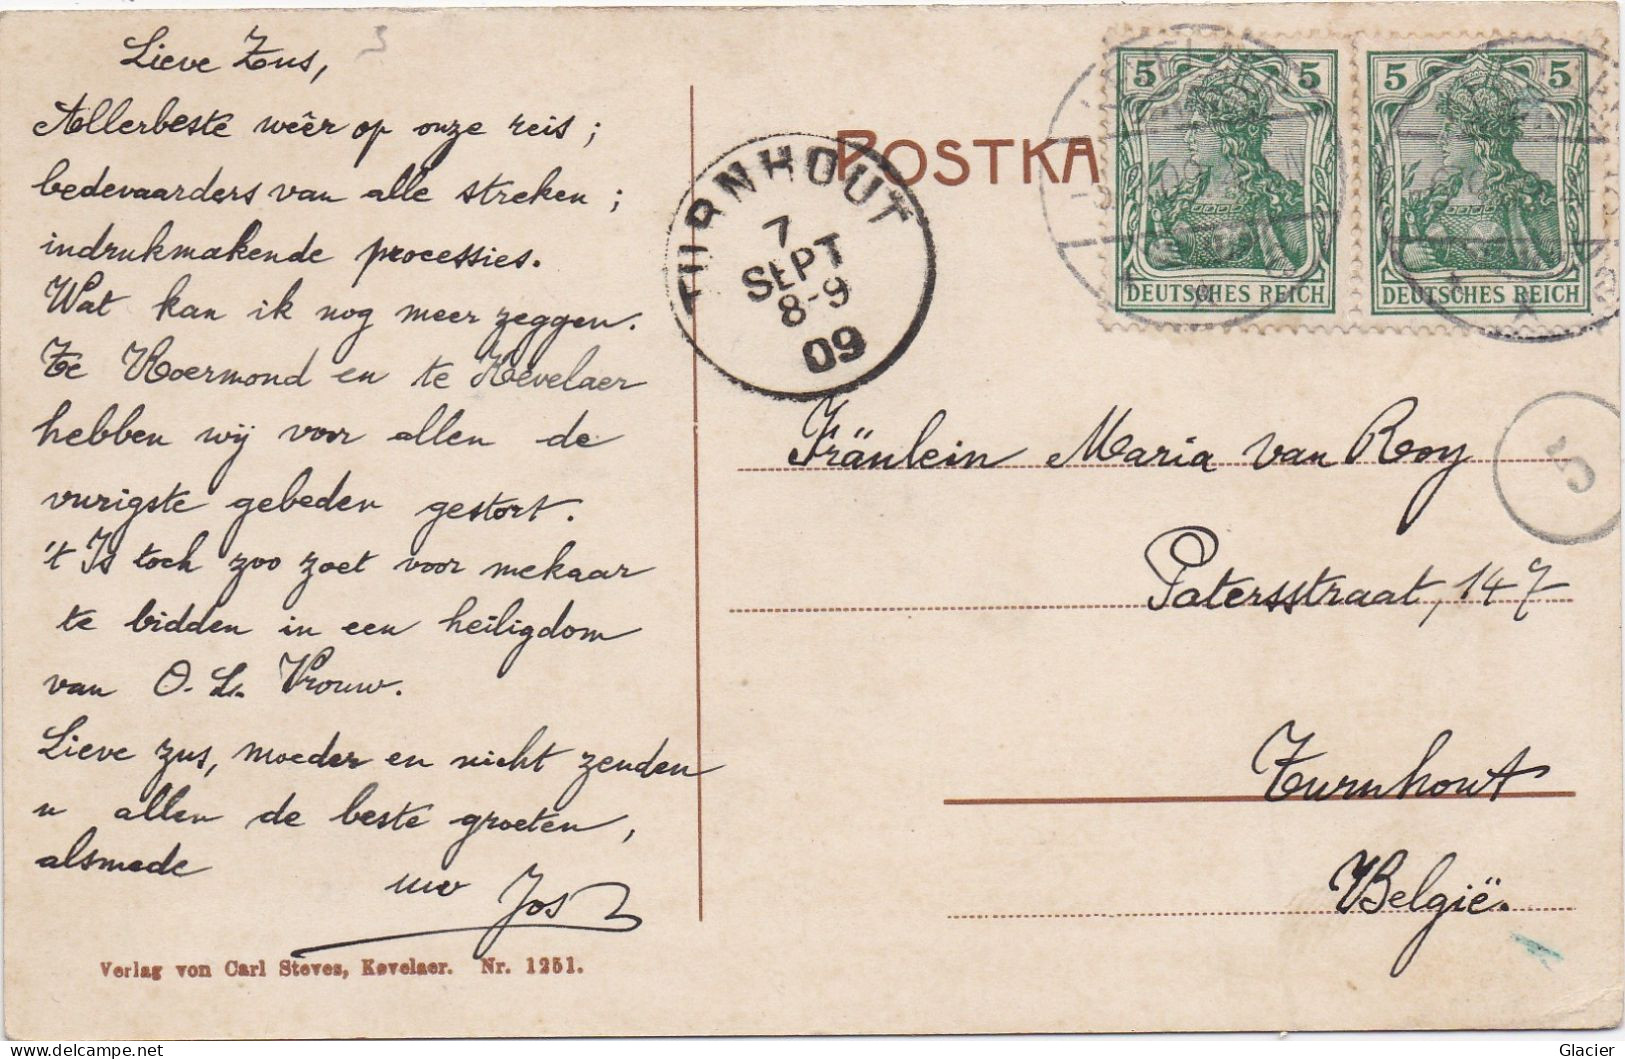 Lieve Zus,
Allerbeste weêr op onze reis ;
bedevaarders van alle streken ;
indrukmakende processies.
Wat kan ik nog meer zeggen.
Te Roermond en te Kevelaer
hebben wij voor allen de
vurigste gebeden gestort.
't Is toch zoo zoet voor mekaar
te bidden in een heiligdom
van O. L. Vrouw.
Lieve zus, moeder en nicht zenden
u allen de beste groeten,
alsmede uw Jos
Verlag von Carl Steves, Kevelaer. Nr. 1251.
POSTKA
TURNHOUT
7
SEPT
8-9
09
5 5
DEUTSCHES REICH
5 5
DEUTSCHES REICH
5
Fräulein Maria van Rooy
Patersstraat, 147
Turnhout
België.
Glacier